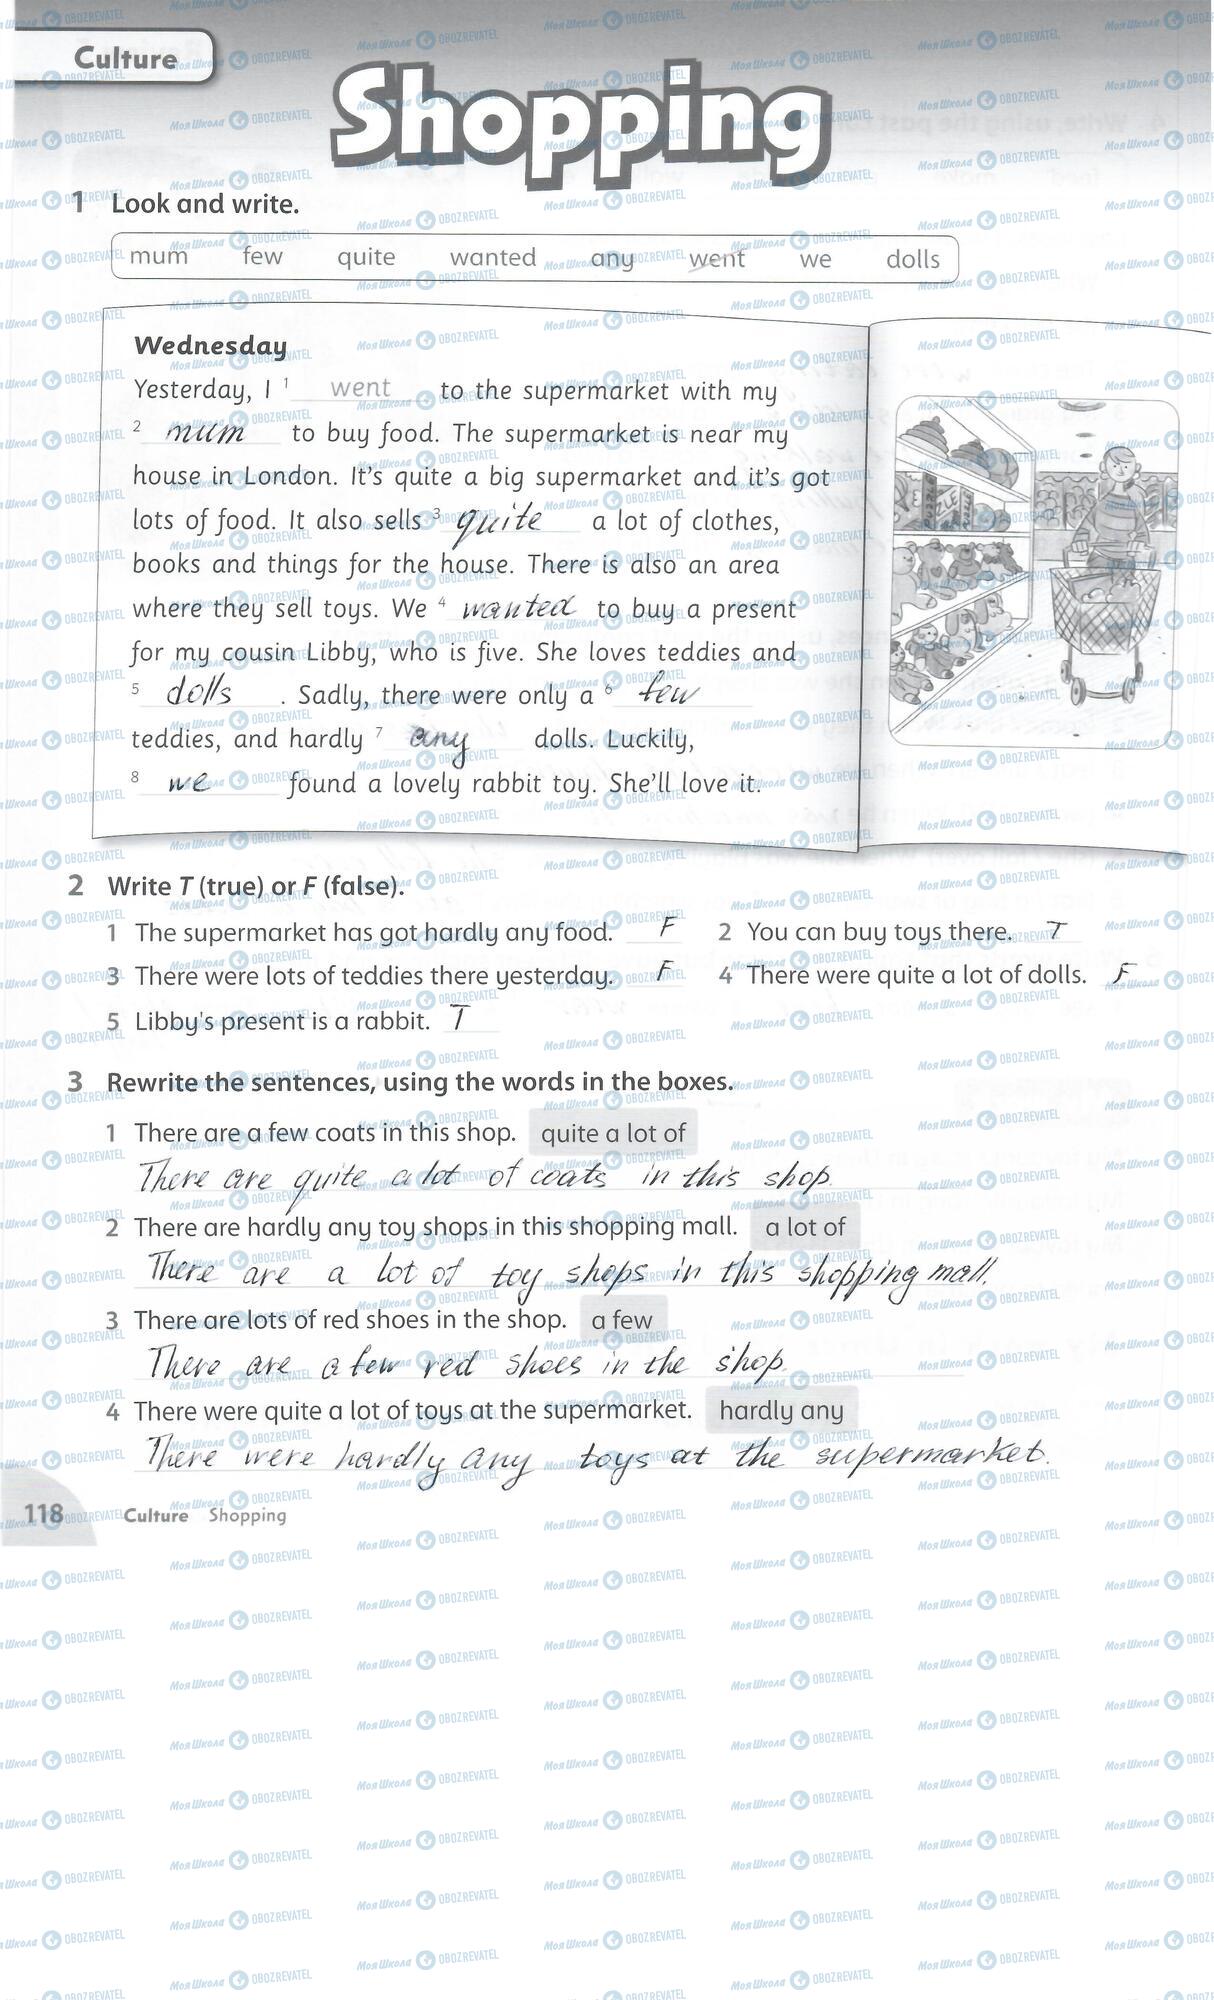 Culture
Shopping
1 Look and write.
mum few quite wanted any went we dolls
Wednesday
Yesterday, I 1 went to the supermarket with my
2 mum to buy food. The supermarket is near my
house in London. It's quite a big supermarket and it's got
lots of food. It also sells 3 quite a lot of clothes,
books and things for the house. There is also an area
where they sell toys. We 4 wanted to buy a present
for my cousin Libby, who is five. She loves teddies and
5 dolls . Sadly, there were only a 6 few
teddies, and hardly 7 any dolls. Luckily,
8 we found a lovely rabbit toy. She'll love it.
2 Write T (true) or F (false).
1 The supermarket has got hardly any food. F 2 You can buy toys there. T
3 There were lots of teddies there yesterday. F 4 There were quite a lot of dolls. F
5 Libby's present is a rabbit. T
3 Rewrite the sentences, using the words in the boxes.
1 There are a few coats in this shop. quite a lot of
There are quite a lot of coats in this shop.
2 There are hardly any toy shops in this shopping mall. a lot of
There are a lot of toy shops in this shopping mall.
3 There are lots of red shoes in the shop. a few
There are a few red shoes in the shop.
4 There were quite a lot of toys at the supermarket. hardly any
There were hardly any toys at the supermarket.
118 Culture Shopping
Моя Школа OBOZREVATEL